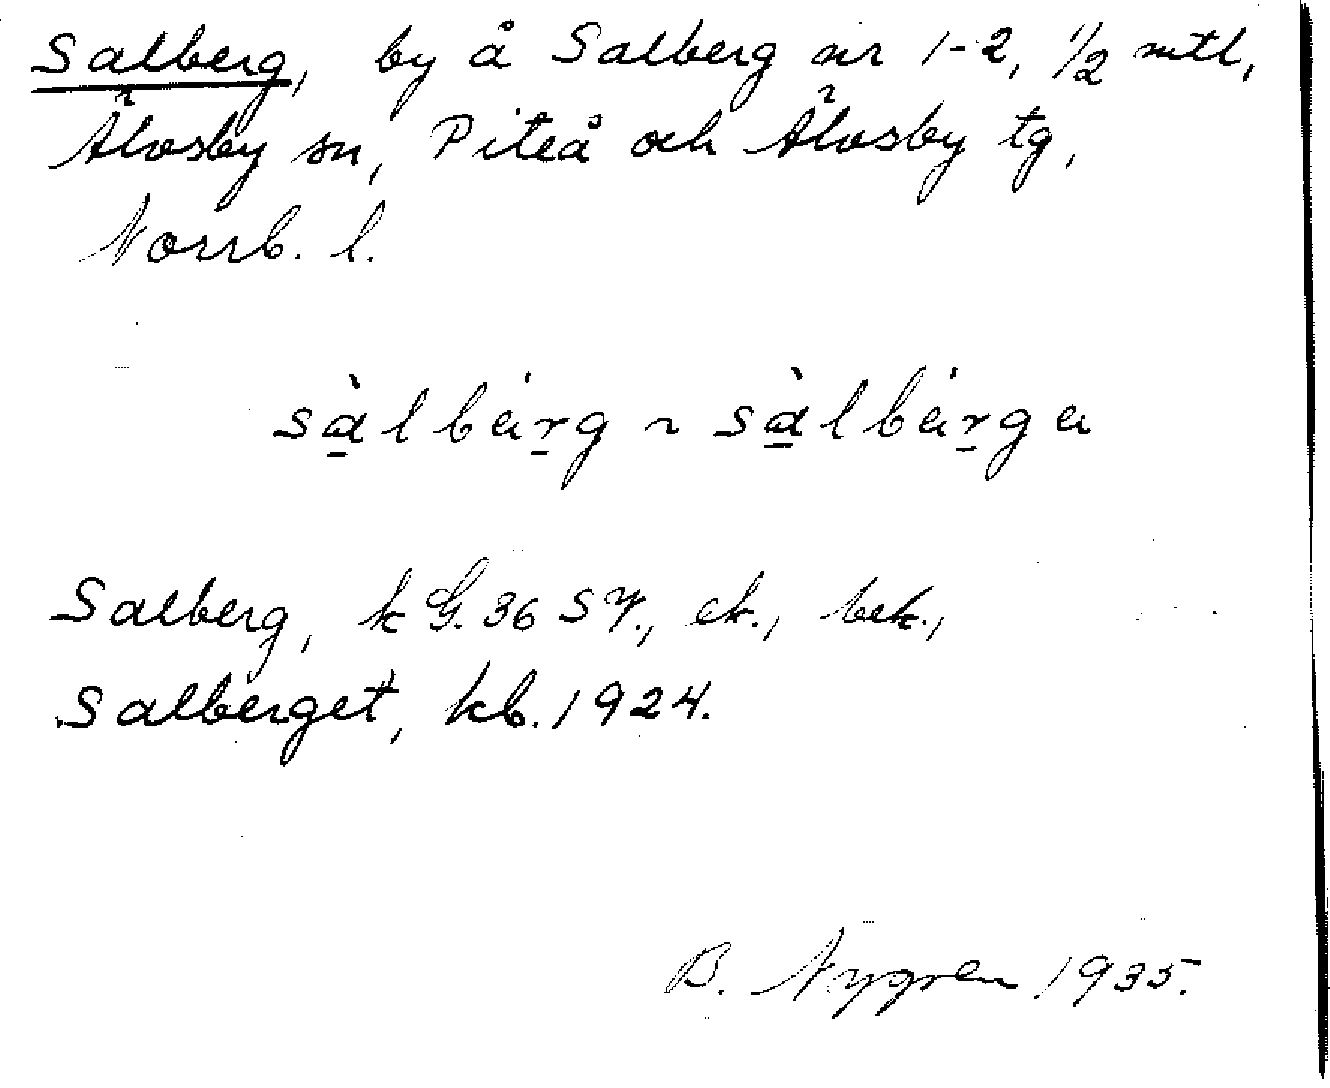 Salberg, by å Salberg nr 1-2, 1/2 mtl,
Älvsby sn, Piteå och Älvsby tg,
Norrb. l.
sàlbárg ~ sàlbárga
Salberg, k G. 36 SV., ek., bek.,
Salberget, kb. 1924.
B. Nygren 1935.